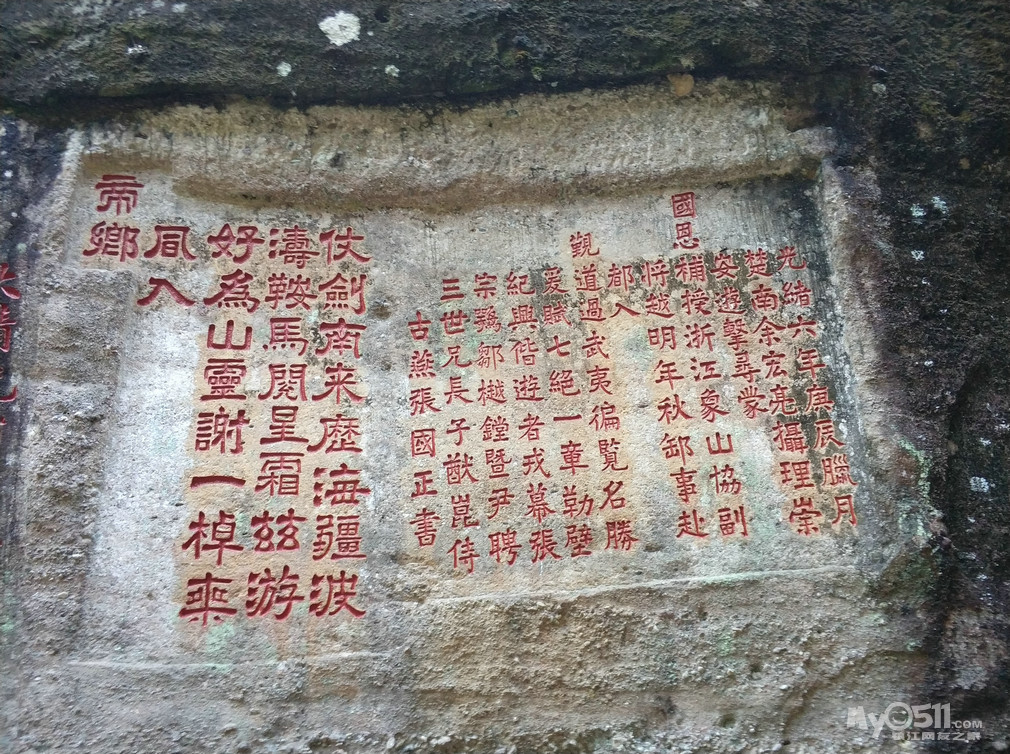 光緒六年庚辰臘月
楚南余宏亮攝理崇
安遊擊尋蒙
國恩補授浙江象山協副
將越明年秋卸事赴
都入
觀道過武夷徧覧名勝
爰賦七絕一章勒壁
紀興偕遊者戎幕張
宗鶚鄒樾鏜暨尹聘
三世兄長子猷崑侍
古燕張國正書
仗劍南来歷海疆波
濤鞍馬閱星霜兹游
好為山靈謝一棹乘
風入
帝鄉
My0511.COM
镇江网友之家